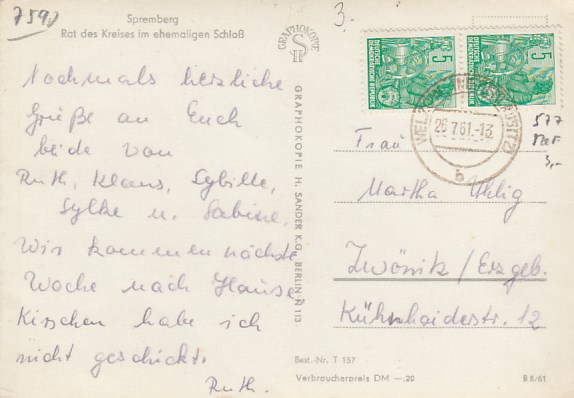 759)
3.
Spremberg
Rat des Kreises im ehemaligen Schloß
Nochmals herzliche
Grüße an Euch
beide von
Ruth, Klaus, Sybille,
Sylke u. Sabine.
Wir kommen nächste
Woche nach Hause.
Kirschen habe ich
nicht geschickt.
Ruth.
GRAPHOKOPIE
GRAPHOKOPIE H. SANDER K.G., BERLIN N 113
DEUTSCHE DEMOKRATISCHE REPUBLIK 5
DEUTSCHE DEMOKRATISCHE REPUBLIK 5
WELZOW
26.7.61.-13
b
577
Frau
Martha Uhlig
Zwönitz/Erzgeb.
Kühnhaidestr. 12
Best.-Nr. T 157
Verbraucherpreis DM —.20
B 8/61